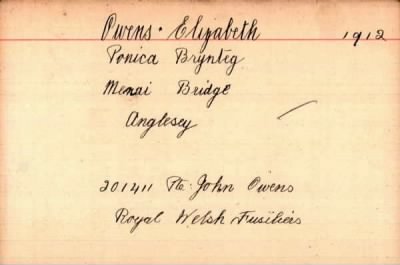 Owens · Elizabeth 1912
Ponica Brynteg
Menai Bridge
Anglesey
201411 Pte. John Owens
Royal Welsh Fusiliers